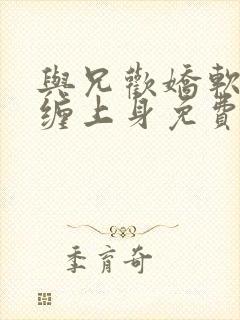 與兄歡嬌軟
纏上身免費
季育奇